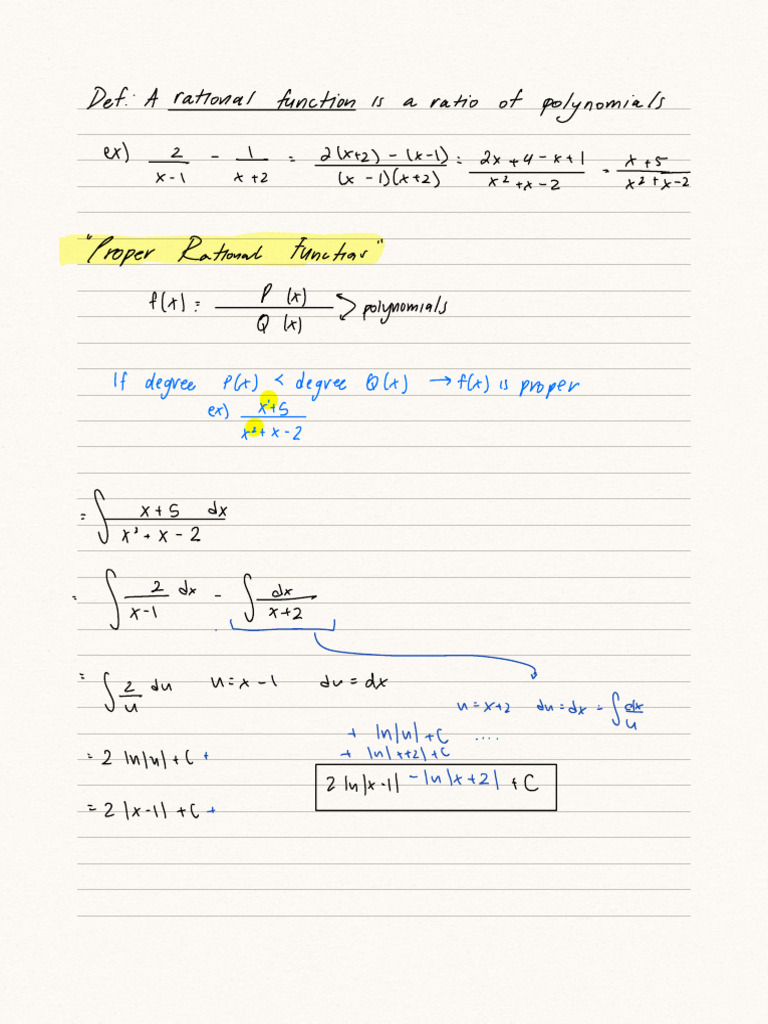 Def: A rational function is a ratio of polynomials
ex) 2/(x-1) - 1/(x+2) = (2(x+2) - (x-1))/((x-1)(x+2)) = (2x+4-x+1)/(x²+x-2) = (x+5)/(x²+x-2)
"Proper Rational Functions"
f(x) = P(x)/Q(x) > polynomials
If degree P(x) < degree Q(x) → f(x) is proper
ex) (x¹+5)/(x²+x-2)
= ∫ (x+5 dx)/(x²+x-2)
= ∫ 2/(x-1) dx - ∫ dx/(x+2)
= ∫ 2/u du u=x-1 du=dx
u=x+2 du=dx = ∫ dx/u
+ ln|u|+C ....
+ ln|x+2|+C
= 2 ln|u|+C +
2 ln|x-1| - ln|x+2| + C
= 2 |x-1| +C +